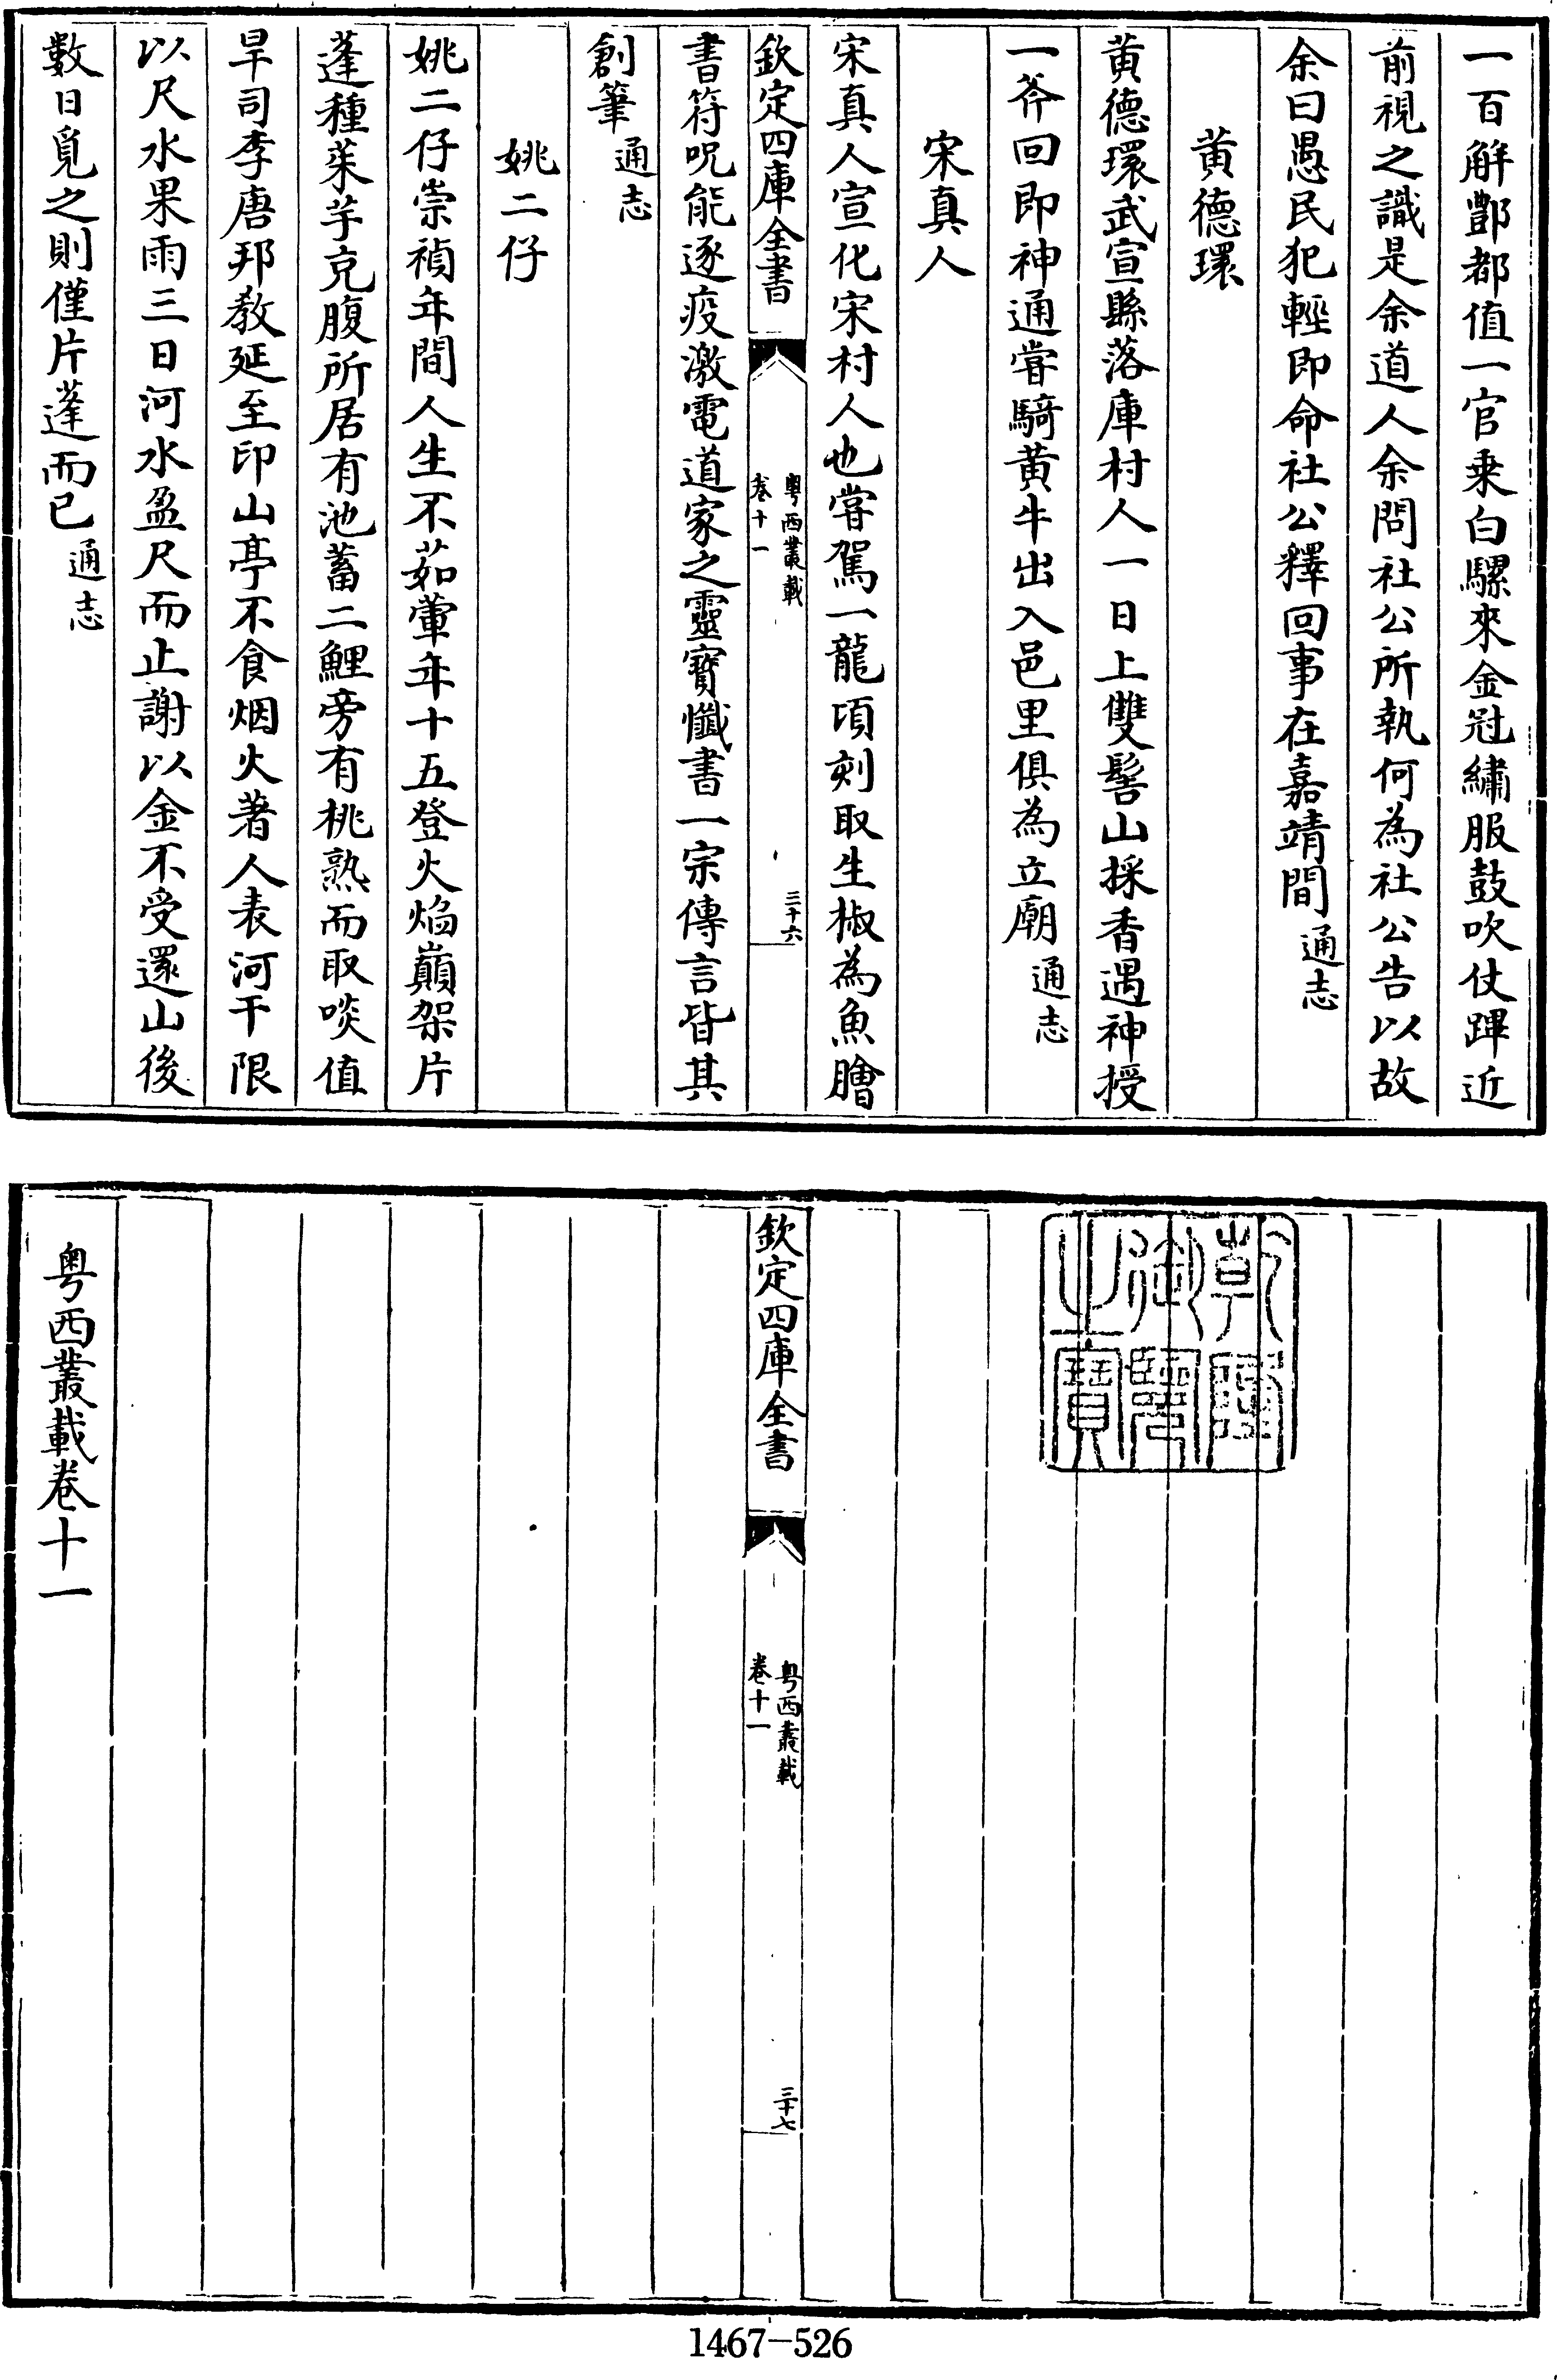 一百解酆都值一官乗白騾來金冠繡服鼓吹仗蹕近
前視之識是余道人余問社公所執何為社公告以故
余曰愚民犯輕即命社公釋回事在嘉靖間通志
黄德環
黄德環武宣縣落庫村人一日上雙髻山採香遇神授
一斧回即神通嘗騎黄牛出入邑里俱為立廟通志
宋真人
宋真人宣化宋村人也嘗駕一龍項刻取生椒為魚膾
欽定四庫全書
粤西叢載
卷十一
三十六
書符呪能逐疫激電道家之靈寳懺書一宗傳言皆其
創筆通志
姚二仔
姚二仔崇禎年間人生不茹葷年十五登火焰巔架片
蓬種菜芋克腹所居有池蓄二鯉旁有桃熟而取啖值
旱司李唐邦教延至印山亭不食烟火著人表河干限
以尺水果雨三日河水盈尺而止謝以金不受還山後
數日覓之則僅片蓬而已通志
乾隆
御覽
之寶
欽定四庫全書
粤西叢載
卷十一
三十七
粤西叢載卷十一
1467-526